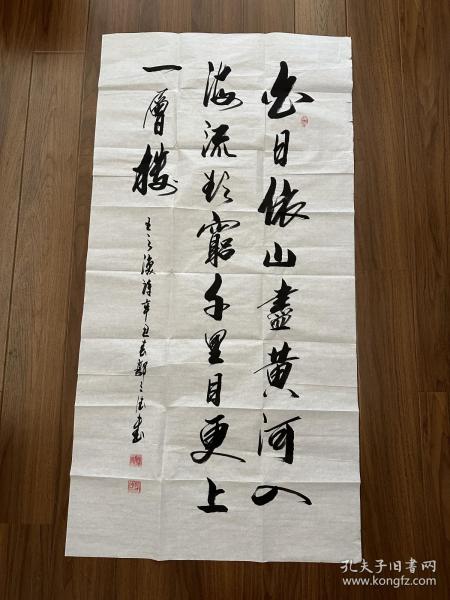 白日依山盡黄河入
海流欲窮千里目更上
一層樓
王之渙詩辛丑春鄭之书
孔夫子旧书网
www.kongfz.com